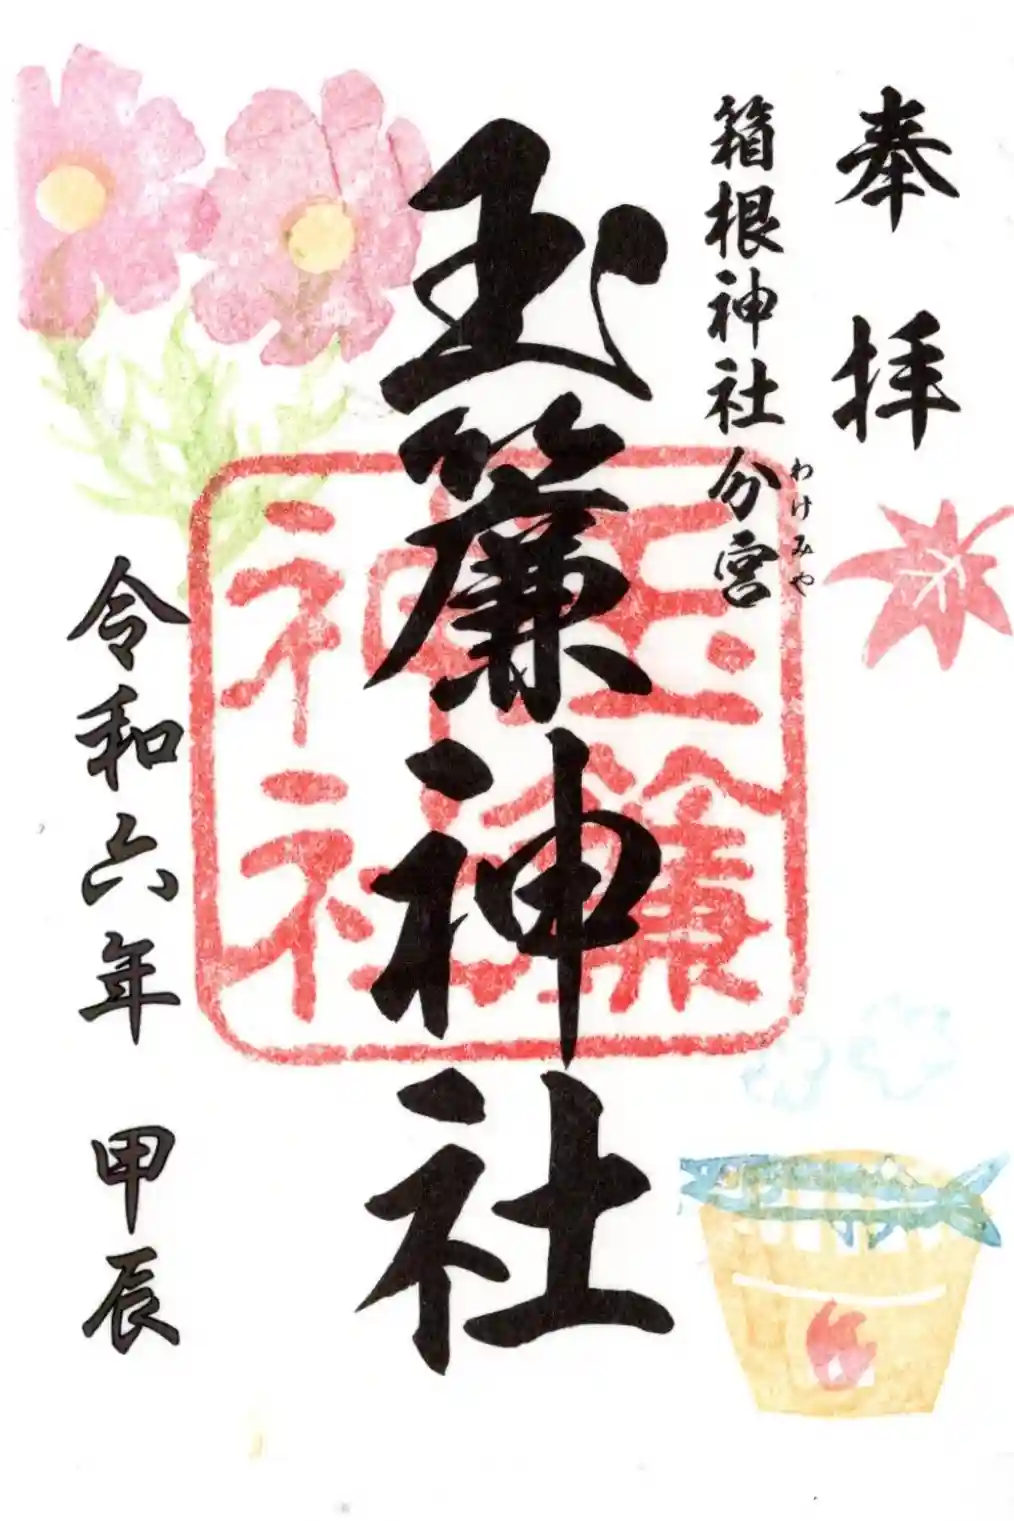 奉拝
箱根神社分宮
わけみや
玉簾神社
玉簾
神社
令和六年 甲辰